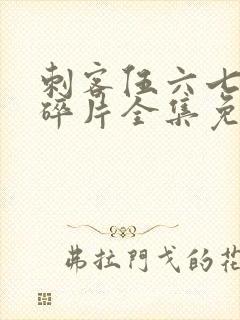 刺客伍六七
碎片全集免
弗拉門戈的花